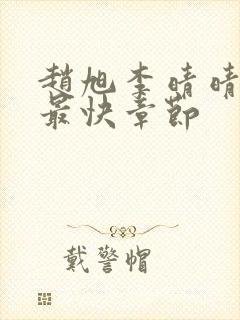 趙旭李晴晴
最快章節
戴警帽